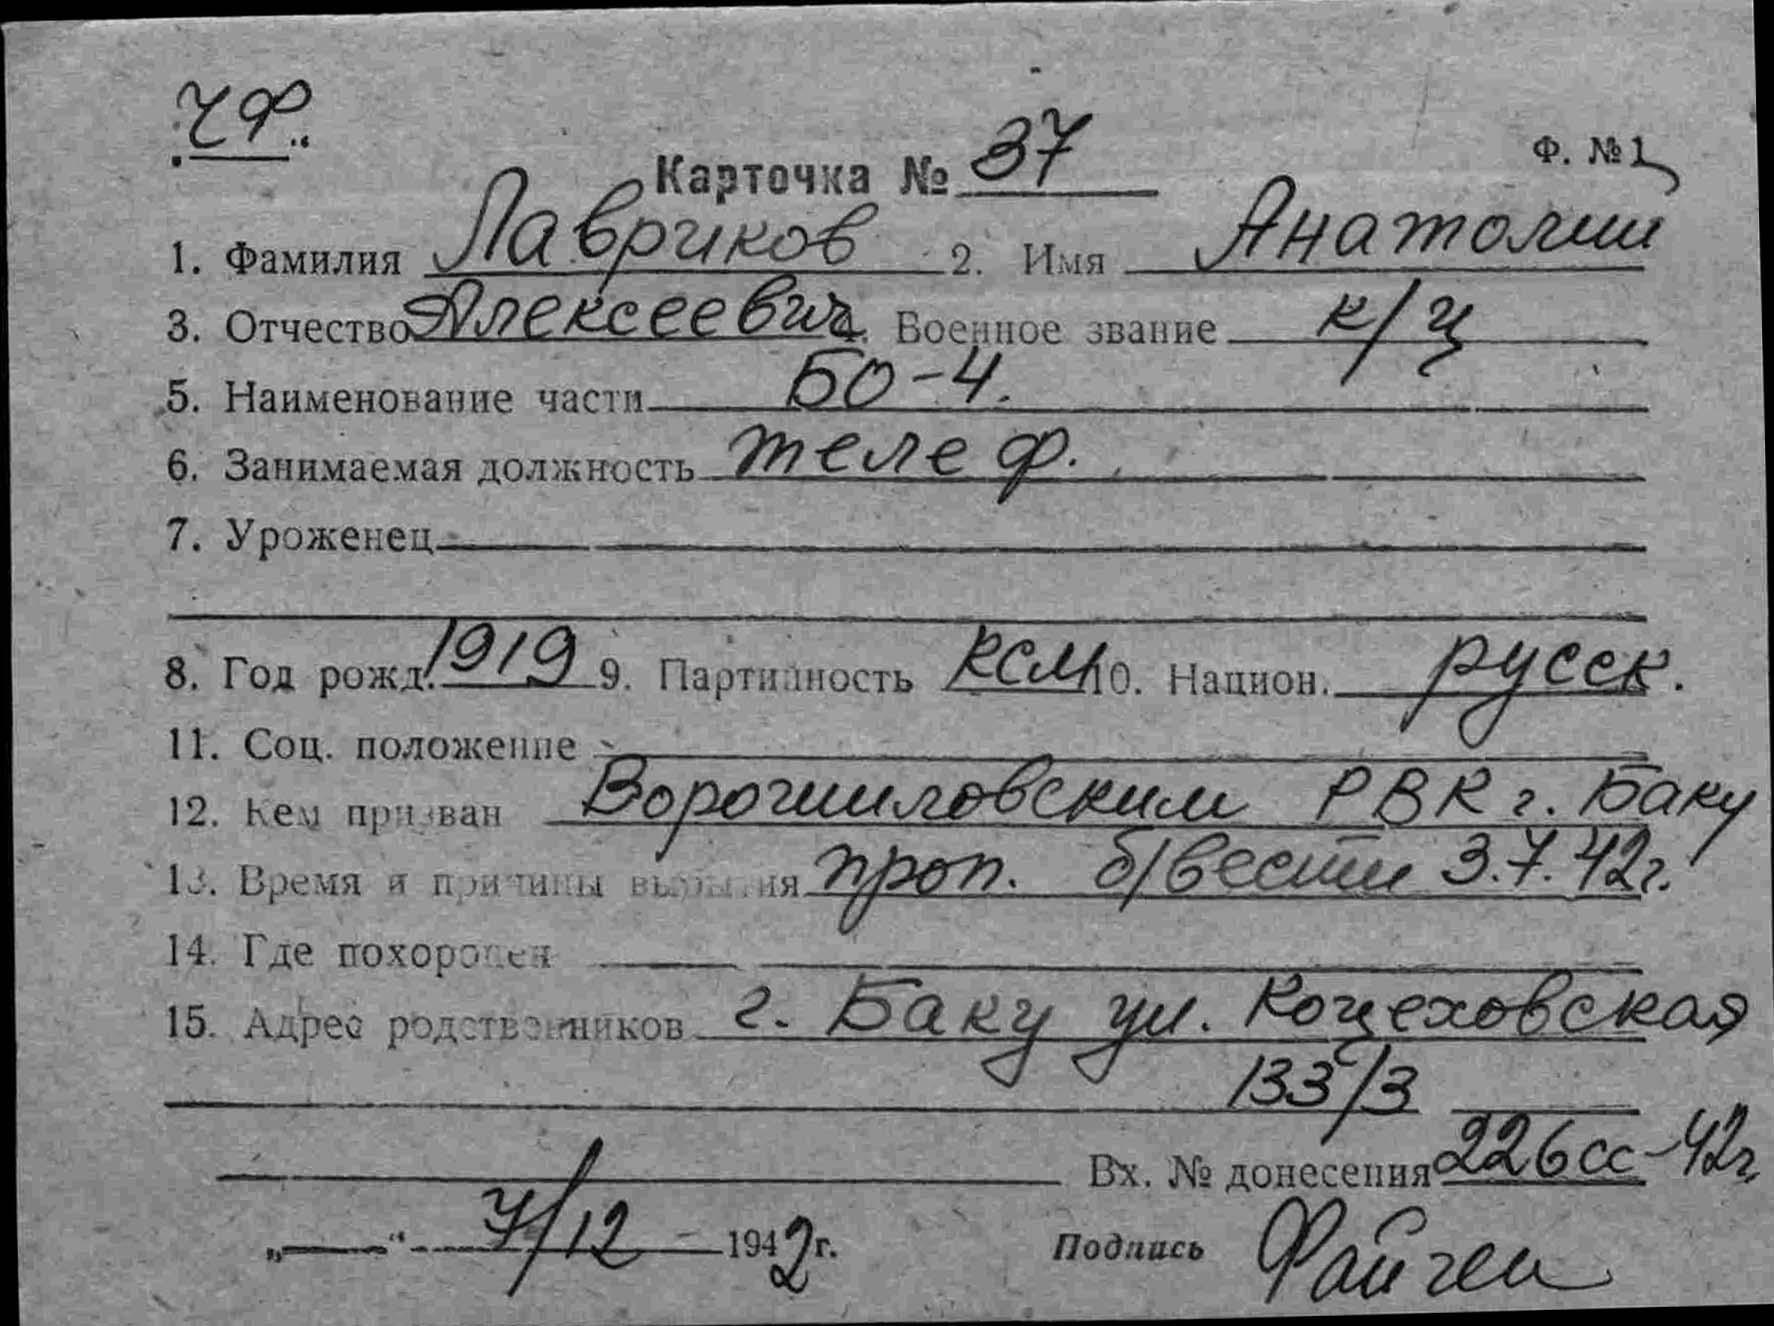 ЧФ.
Карточка № 37
Ф. №1
1. Фамилия Лавриков 2. Имя Анатолий
3. Отчество Алексеевич 4. Военное звание к/ц
5. Наименование части БО-4.
6. Занимаемая должность телеф.
7. Уроженец
8. Год рожд. 1919 9. Партийность КСМ 10. Национ. русск.
11. Соц. положение
12. Кем призван Ворошиловским РВК г. Баку
13. Время и причины выбытия проп. б/вести 3.7.42г.
14. Где похоронен
15. Адрес родственников г. Баку ул. Коцеховская
133/3
Вх. № донесения 226сс-42г.
„ “ 7/12 1942г. Подпись